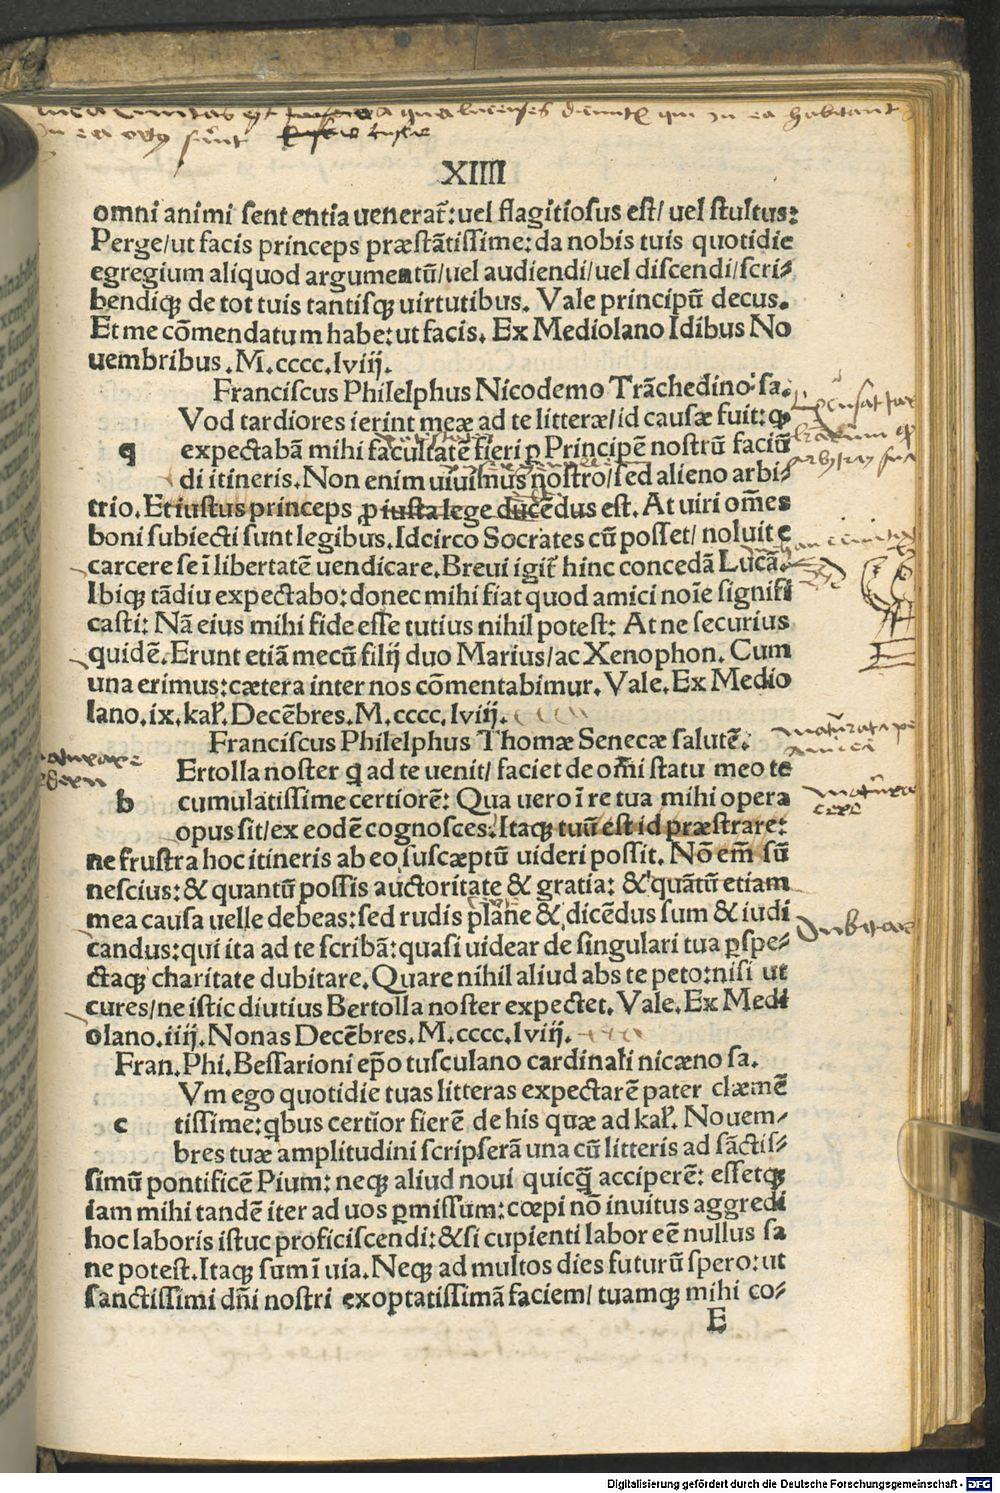 XIIII
omni animi sententia uenerat̃: uel flagitiosus est/ uel stultus:
Perge/ut facis princeps præstãtissime: da nobis tuis quotidie
egregium aliquod argumentũ/uel audiendi/uel discendi/scri⸗
bendiqꝫ de tot tuis tantisqꝫ uirtutibus. Vale principũ decus.
Et me cõmendatum habe: ut facis. Ex Mediolano Idibus No
uembribus .M.cccc.lviij.
Franciscus Philelphus Nicodemo Trãchedino sa.
Vod tardiores ierint meæ ad te litteræ/id causæ fuit: ꝙ
q expectabã mihi facultatẽ fieri ꝑ Principẽ nostrũ faciũ
di itineris. Non enim uiuimus nostro/sed alieno arbi⸗
trio. Et iustus princeps ꝓ iusta lege ducẽdus est. At uiri om̃es
boni subiecti sunt legibus. Idcirco Socrates cũ posset/ noluit e
carcere se ĩ libertatẽ uendicare. Breui igit̃ hinc concedã Lucã.
Ibiqꝫ tãdiu expectabo: donec mihi fiat quod amici noĩe signifi
casti: Nã eius mihi fide esse tutius nihil potest: At ne securius
quidẽ. Erunt etiã mecũ filij duo Marius/ac Xenophon. Cum
una erimus: cætera inter nos cõmentabimur. Vale. Ex Medio
lano.ix.kal̃. Decẽbres. M.cccc.lviij.
Franciscus Philelphus Thomæ Senecæ salutẽ.
Ertolla noster q̃ ad te uenit/ faciet de om̃i statu meo te
b cumulatissime certiorẽ: Qua uero ĩ re tua mihi opera
opus sit/ex eodẽ cognosces. Itaqꝫ tuũ est id præstrare:
ne frustra hoc itineris ab eo suscæptũ uideri possit. Nõ em̃ sũ
nescius: & quantũ possis auctoritate & gratia: & quãtũ etiam
mea causa uelle debeas: sed rudis plane & dicẽdus sum & iudi
candus: qui ita ad te scribã: quasi uidear de singulari tua ꝑspe⸗
ctaqꝫ charitate dubitare. Quare nihil aliud abs te peto: nisi ut
cures/ne istic diutius Bertolla noster expectet. Vale. Ex Medi
olano.iiij. Nonas Decẽbres. M.cccc.lviij.
Fran. Phi. Bessarioni ep̃o tusculano cardinali nicæno sa.
Vm ego quotidie tuas litteras expectarẽ pater clæmẽ
c tissime: q̃bus certior fierẽ de his quæ ad kal̃. Nouem⸗
bres tuæ amplitudini scripserã una cũ litteris ad sãctis⸗
simũ pontificẽ Pium: neqꝫ aliud noui quicq̃ acciperẽ: essetqꝫ
iam mihi tandẽ iter ad uos ꝑmissum: cœpi nõ inuitus aggredi
hoc laboris istuc proficiscendi: & si cupienti labor eẽ nullus sa
ne potest. Itaqꝫ sum ĩ uia. Neqꝫ ad multos dies futurũ spero: ut
sanctissimi dñi nostri exoptatissimã faciem/ tuamqꝫ mihi co⸗
E
Dubitare
Digitalisierung gefördert durch die Deutsche Forschungsgemeinschaft - DFG